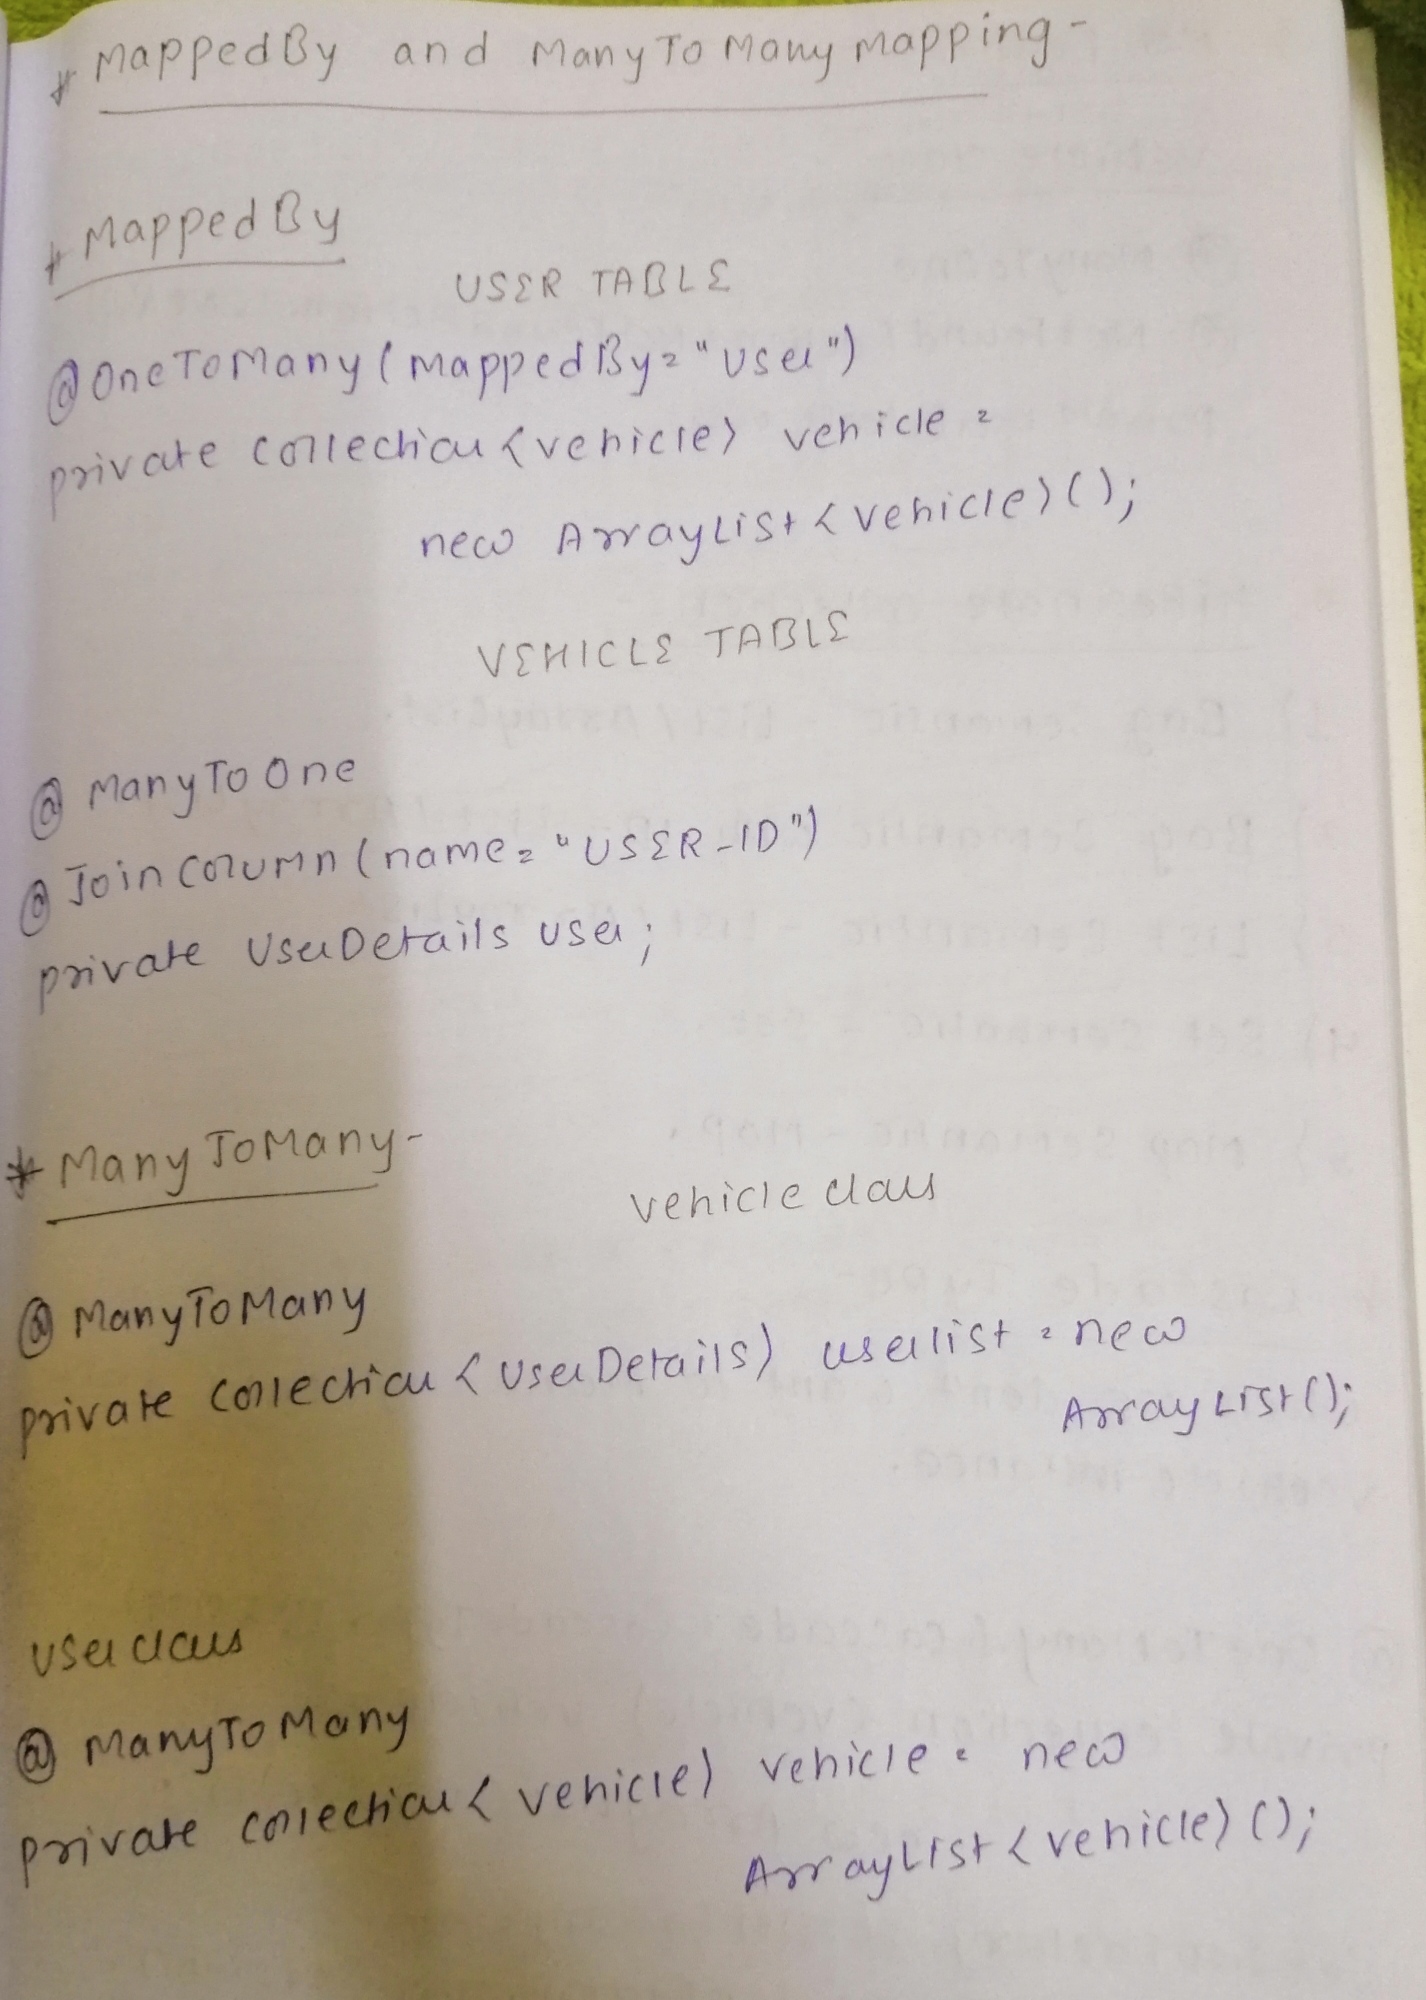 * MappedBy and ManyToMany Mapping -
* MappedBy
USER TABLE
@OneToMany (mappedBy="user")
private collection<vehicle> vehicle =
new ArrayList<vehicle>();
VEHICLE TABLE
@ManyToOne
@JoinColumn (name="USER_ID")
private UserDetails user;
* ManyToMany -
vehicle class
@ManyToMany
private collection<UserDetails> userlist = new
ArrayList();
user class
@ManyToMany
private collection<vehicle> vehicle = new
ArrayList<vehicle>();